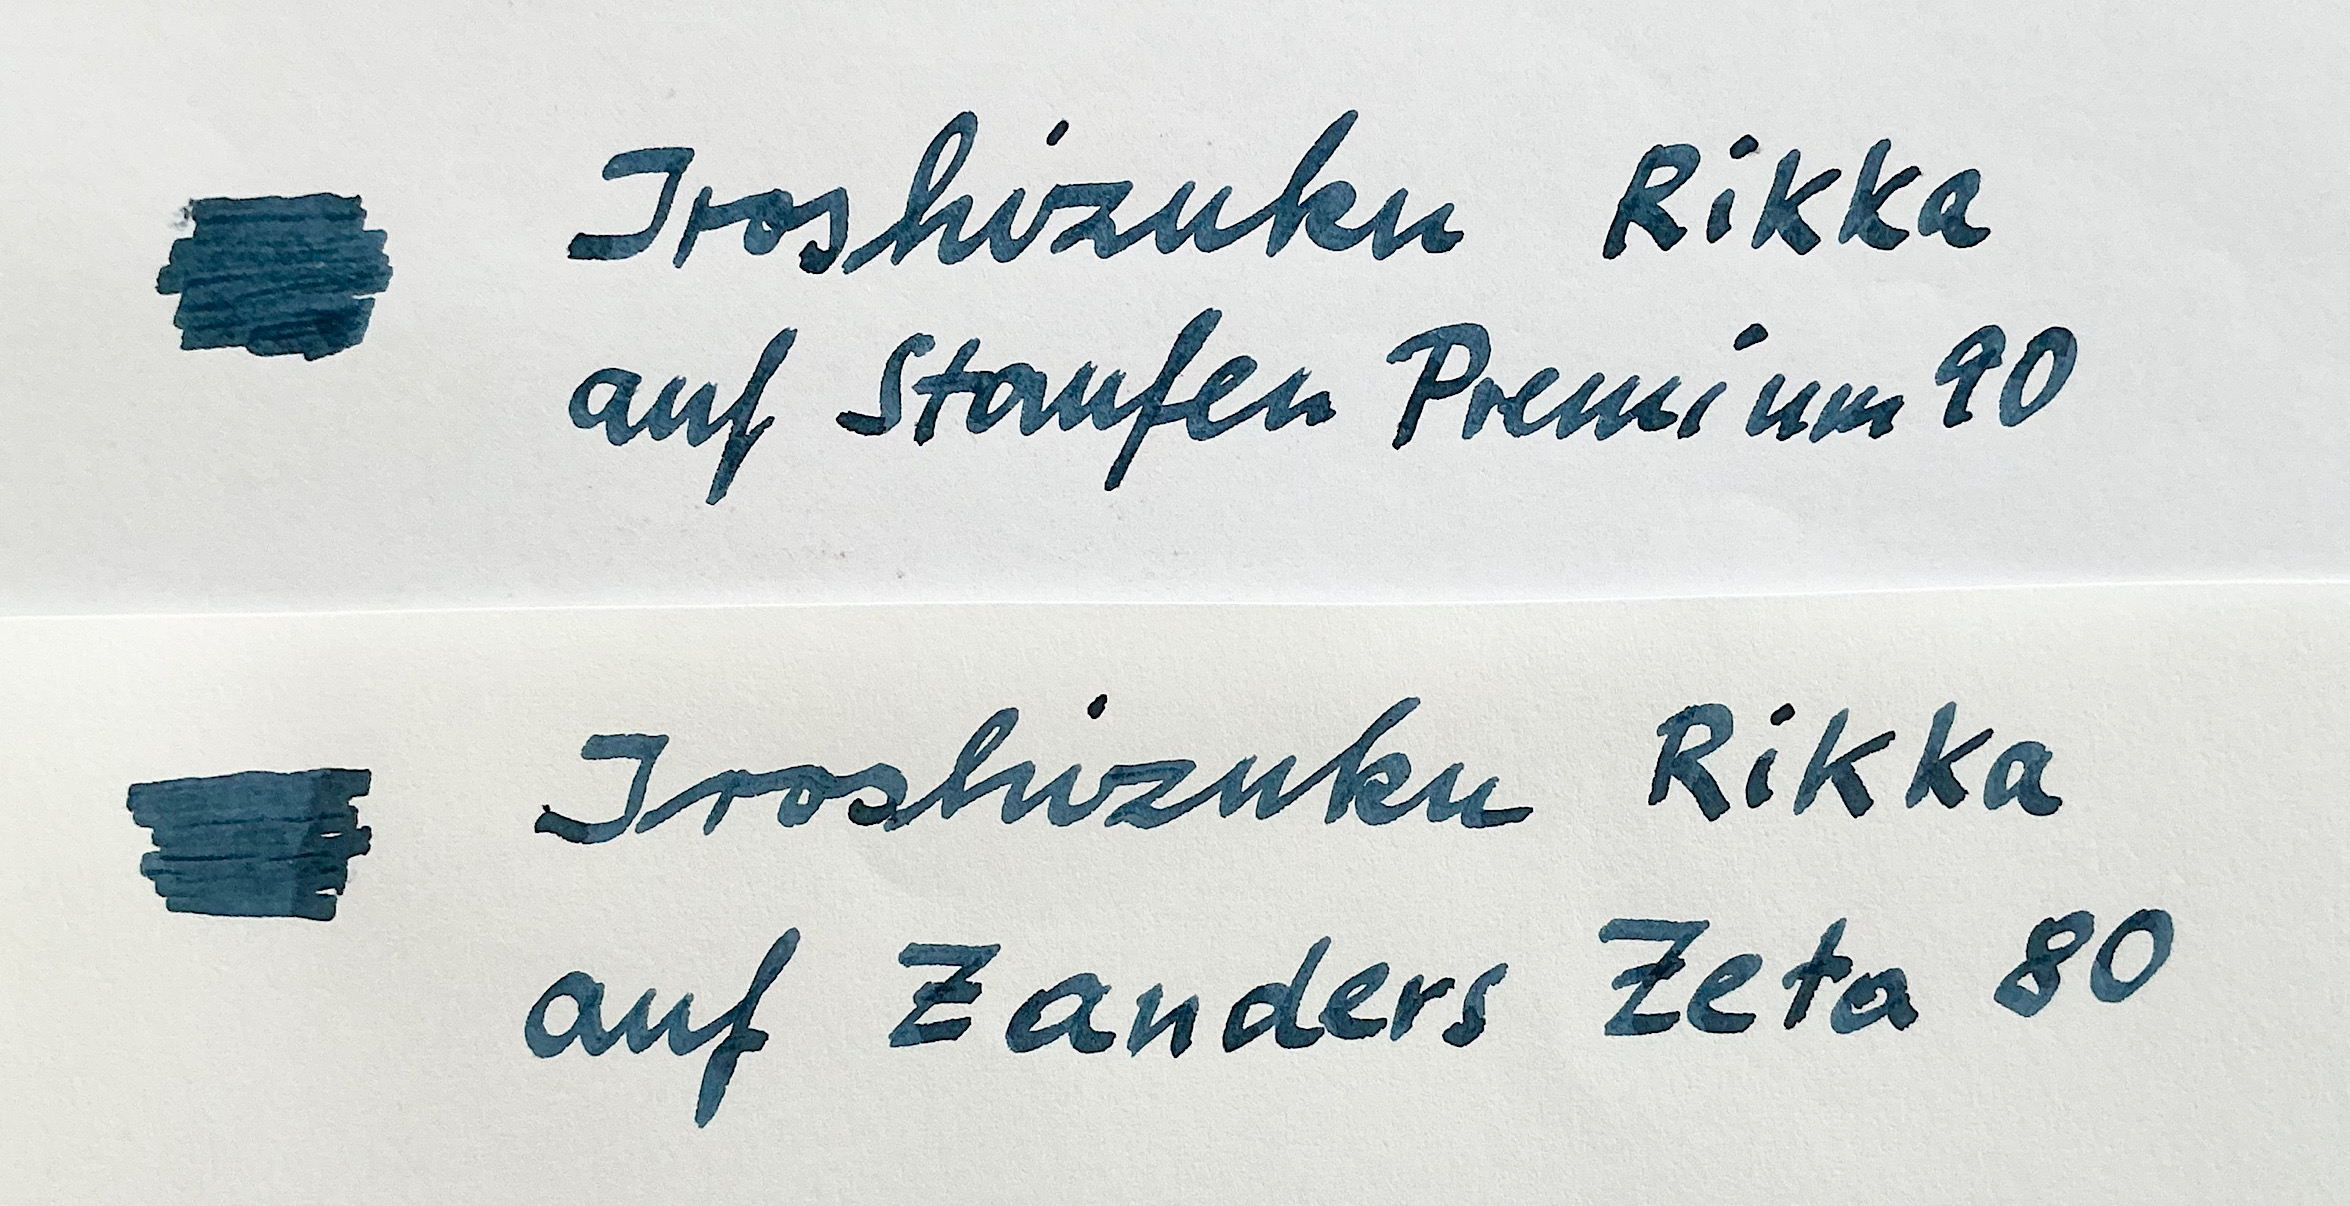 Iroshizuku Rikka
auf Staufen Premium 90
Iroshizuku Rikka
auf Zanders Zeta 80